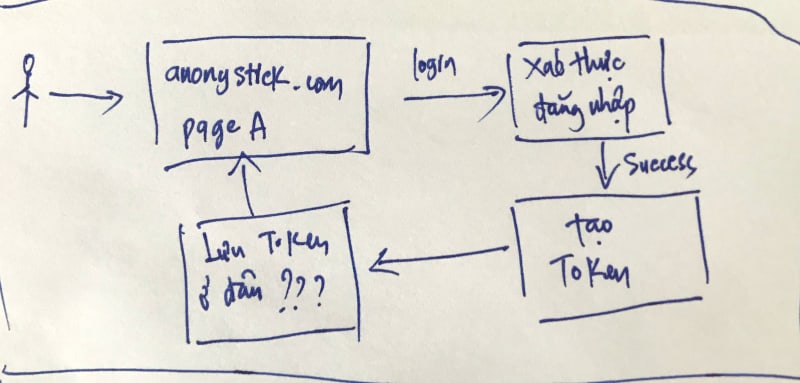 anonystick.com
page A
login
xáb thực
đăng nhập
Success
tạo
Token
Lưu Token
ở đâu ???